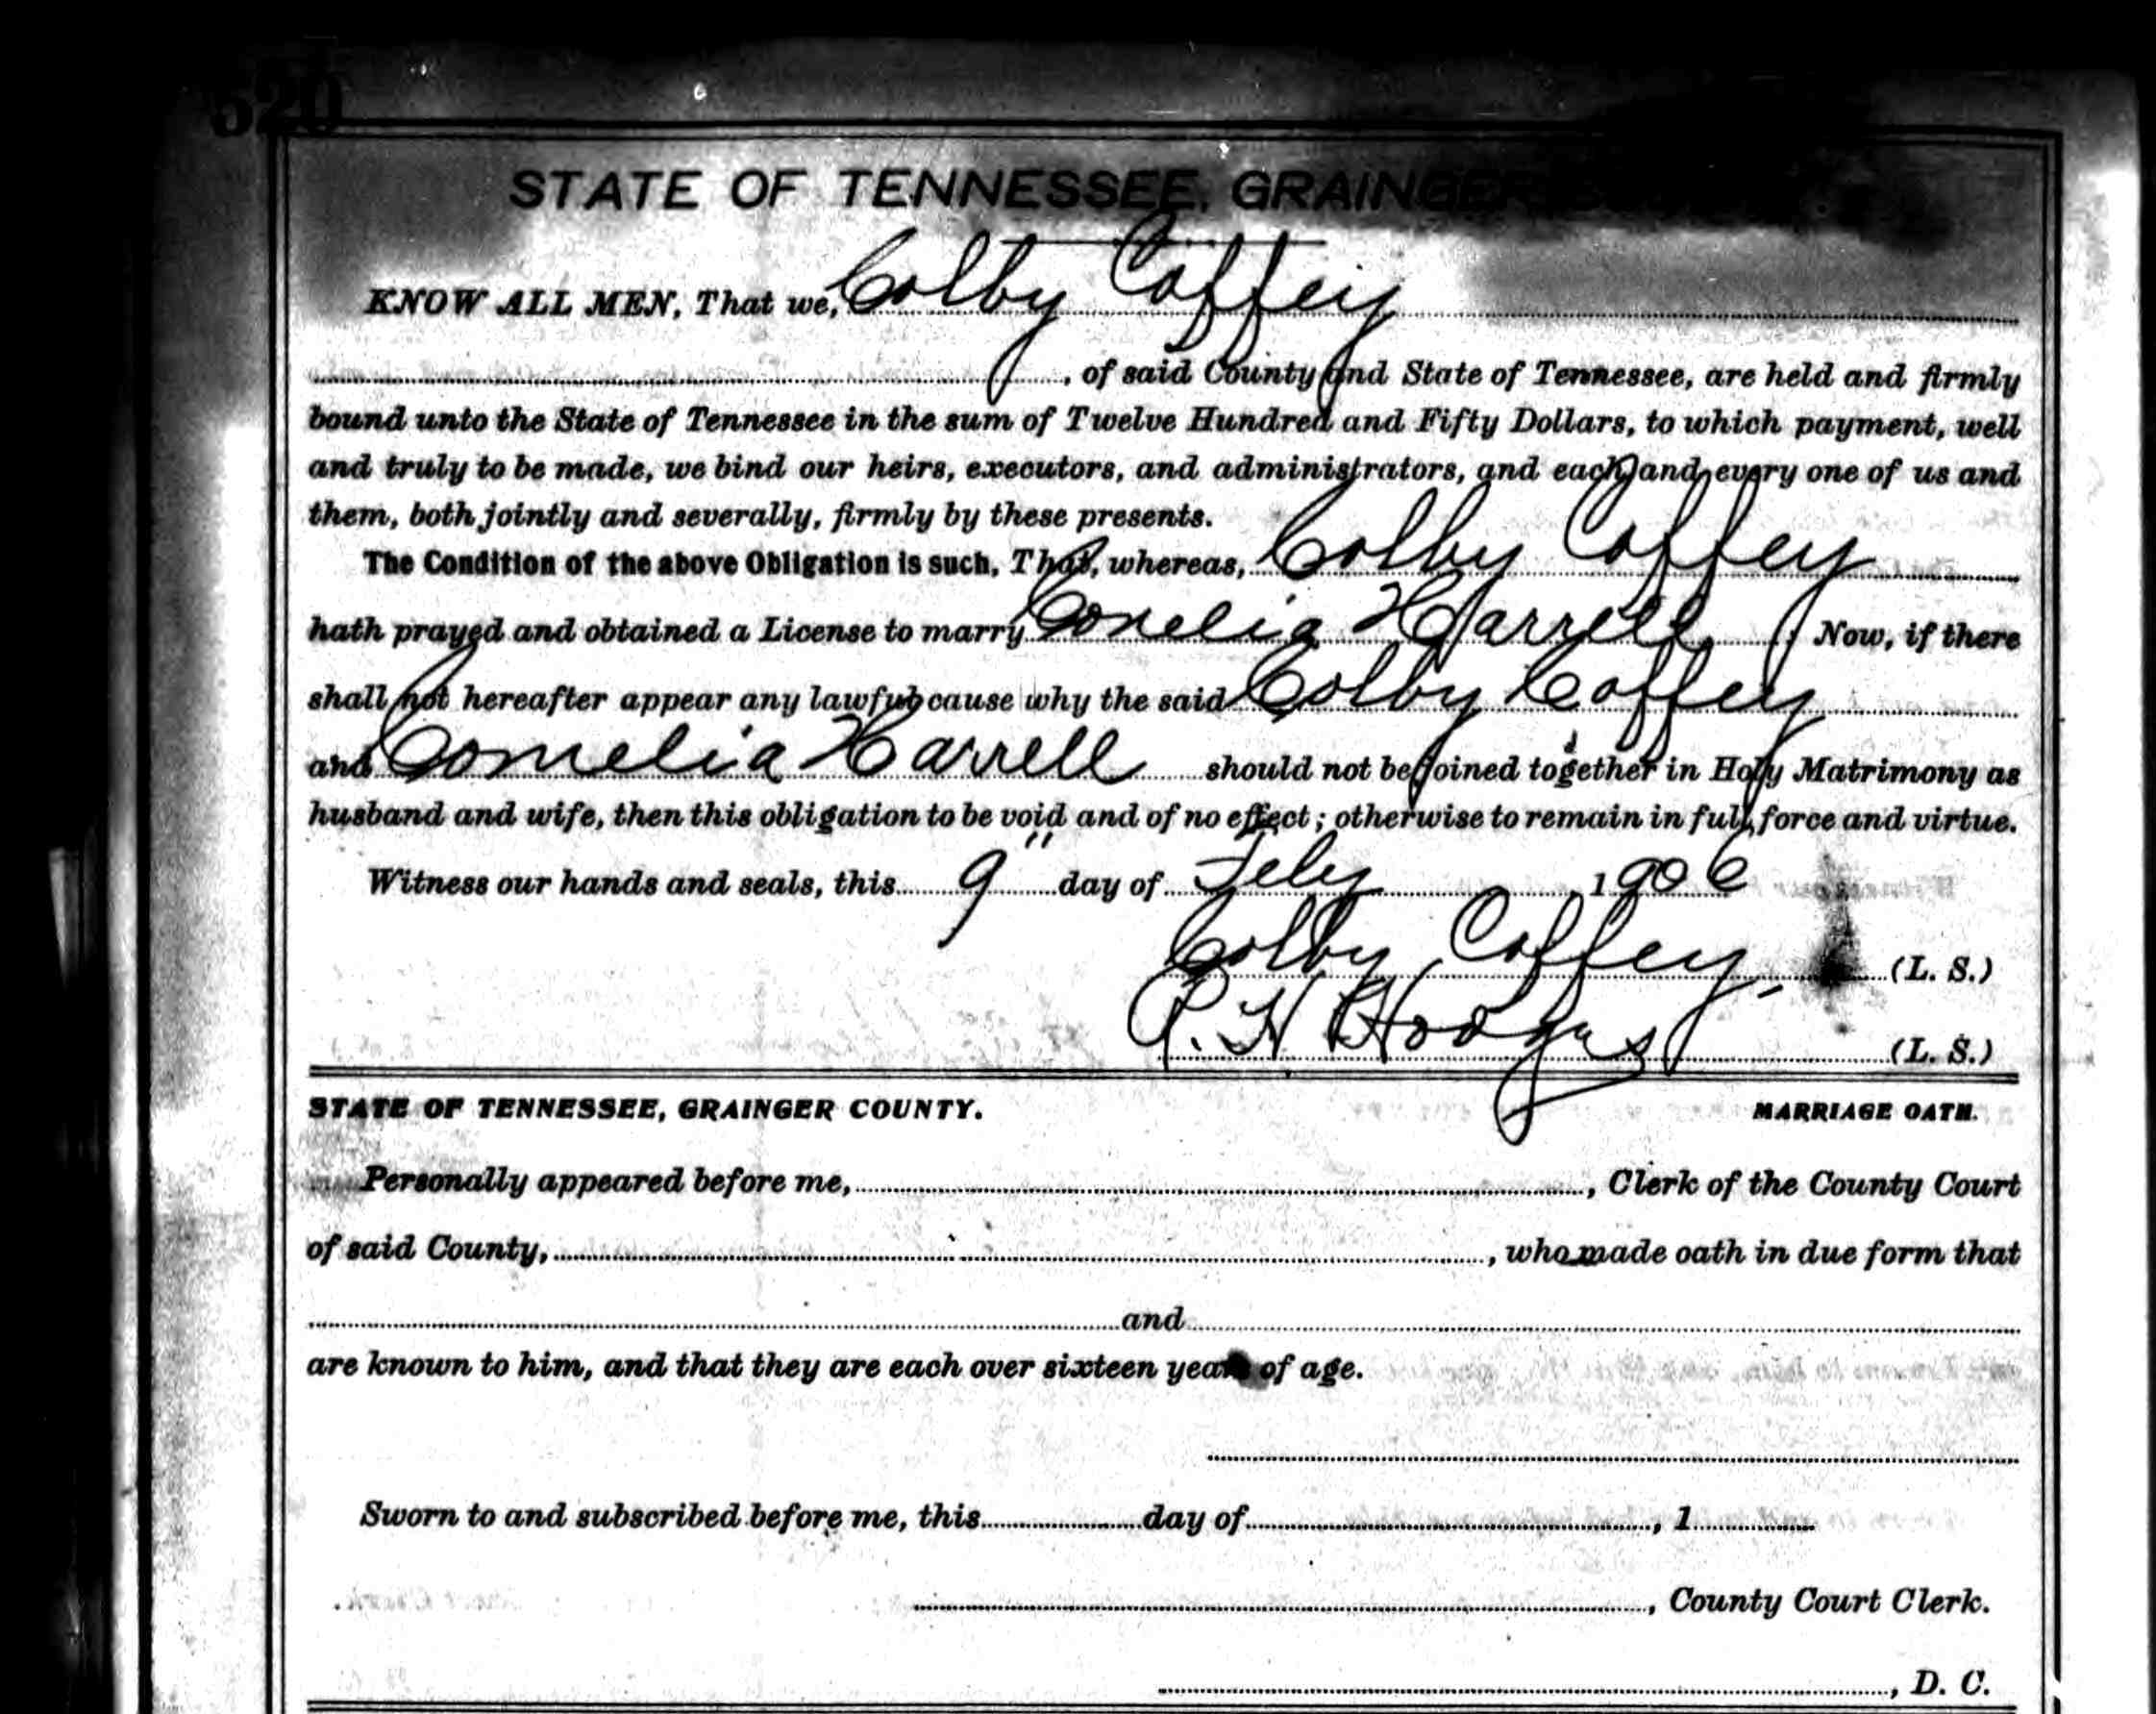 520
STATE OF TENNESSEE, GRAINGER
KNOW ALL MEN, That we, Colby Coffey
, of said County and State of Tennessee, are held and firmly
bound unto the State of Tennessee in the sum of Twelve Hundred and Fifty Dollars, to which payment, well
and truly to be made, we bind our heirs, executors, and administrators, and each and every one of us and
them, both jointly and severally, firmly by these presents.
The Condition of the above Obligation is such, That, whereas, Colby Coffey
hath prayed and obtained a License to marry Cornelia Harrell ; Now, if there
shall not hereafter appear any lawful cause why the said Colby Coffey
and Cornelia Harrell should not be joined together in Holy Matrimony as
husband and wife, then this obligation to be void and of no effect; otherwise to remain in full force and virtue.
Witness our hands and seals, this 9" day of Feby 1906
Colby Coffey (L. S.)
P. H Hodges (L. S.)
STATE OF TENNESSEE, GRAINGER COUNTY. MARRIAGE OATH.
Personally appeared before me, , Clerk of the County Court
of said County, , who made oath in due form that
and
are known to him, and that they are each over sixteen years of age.
Sworn to and subscribed before me, this day of , 1
, County Court Clerk.
, D. C.